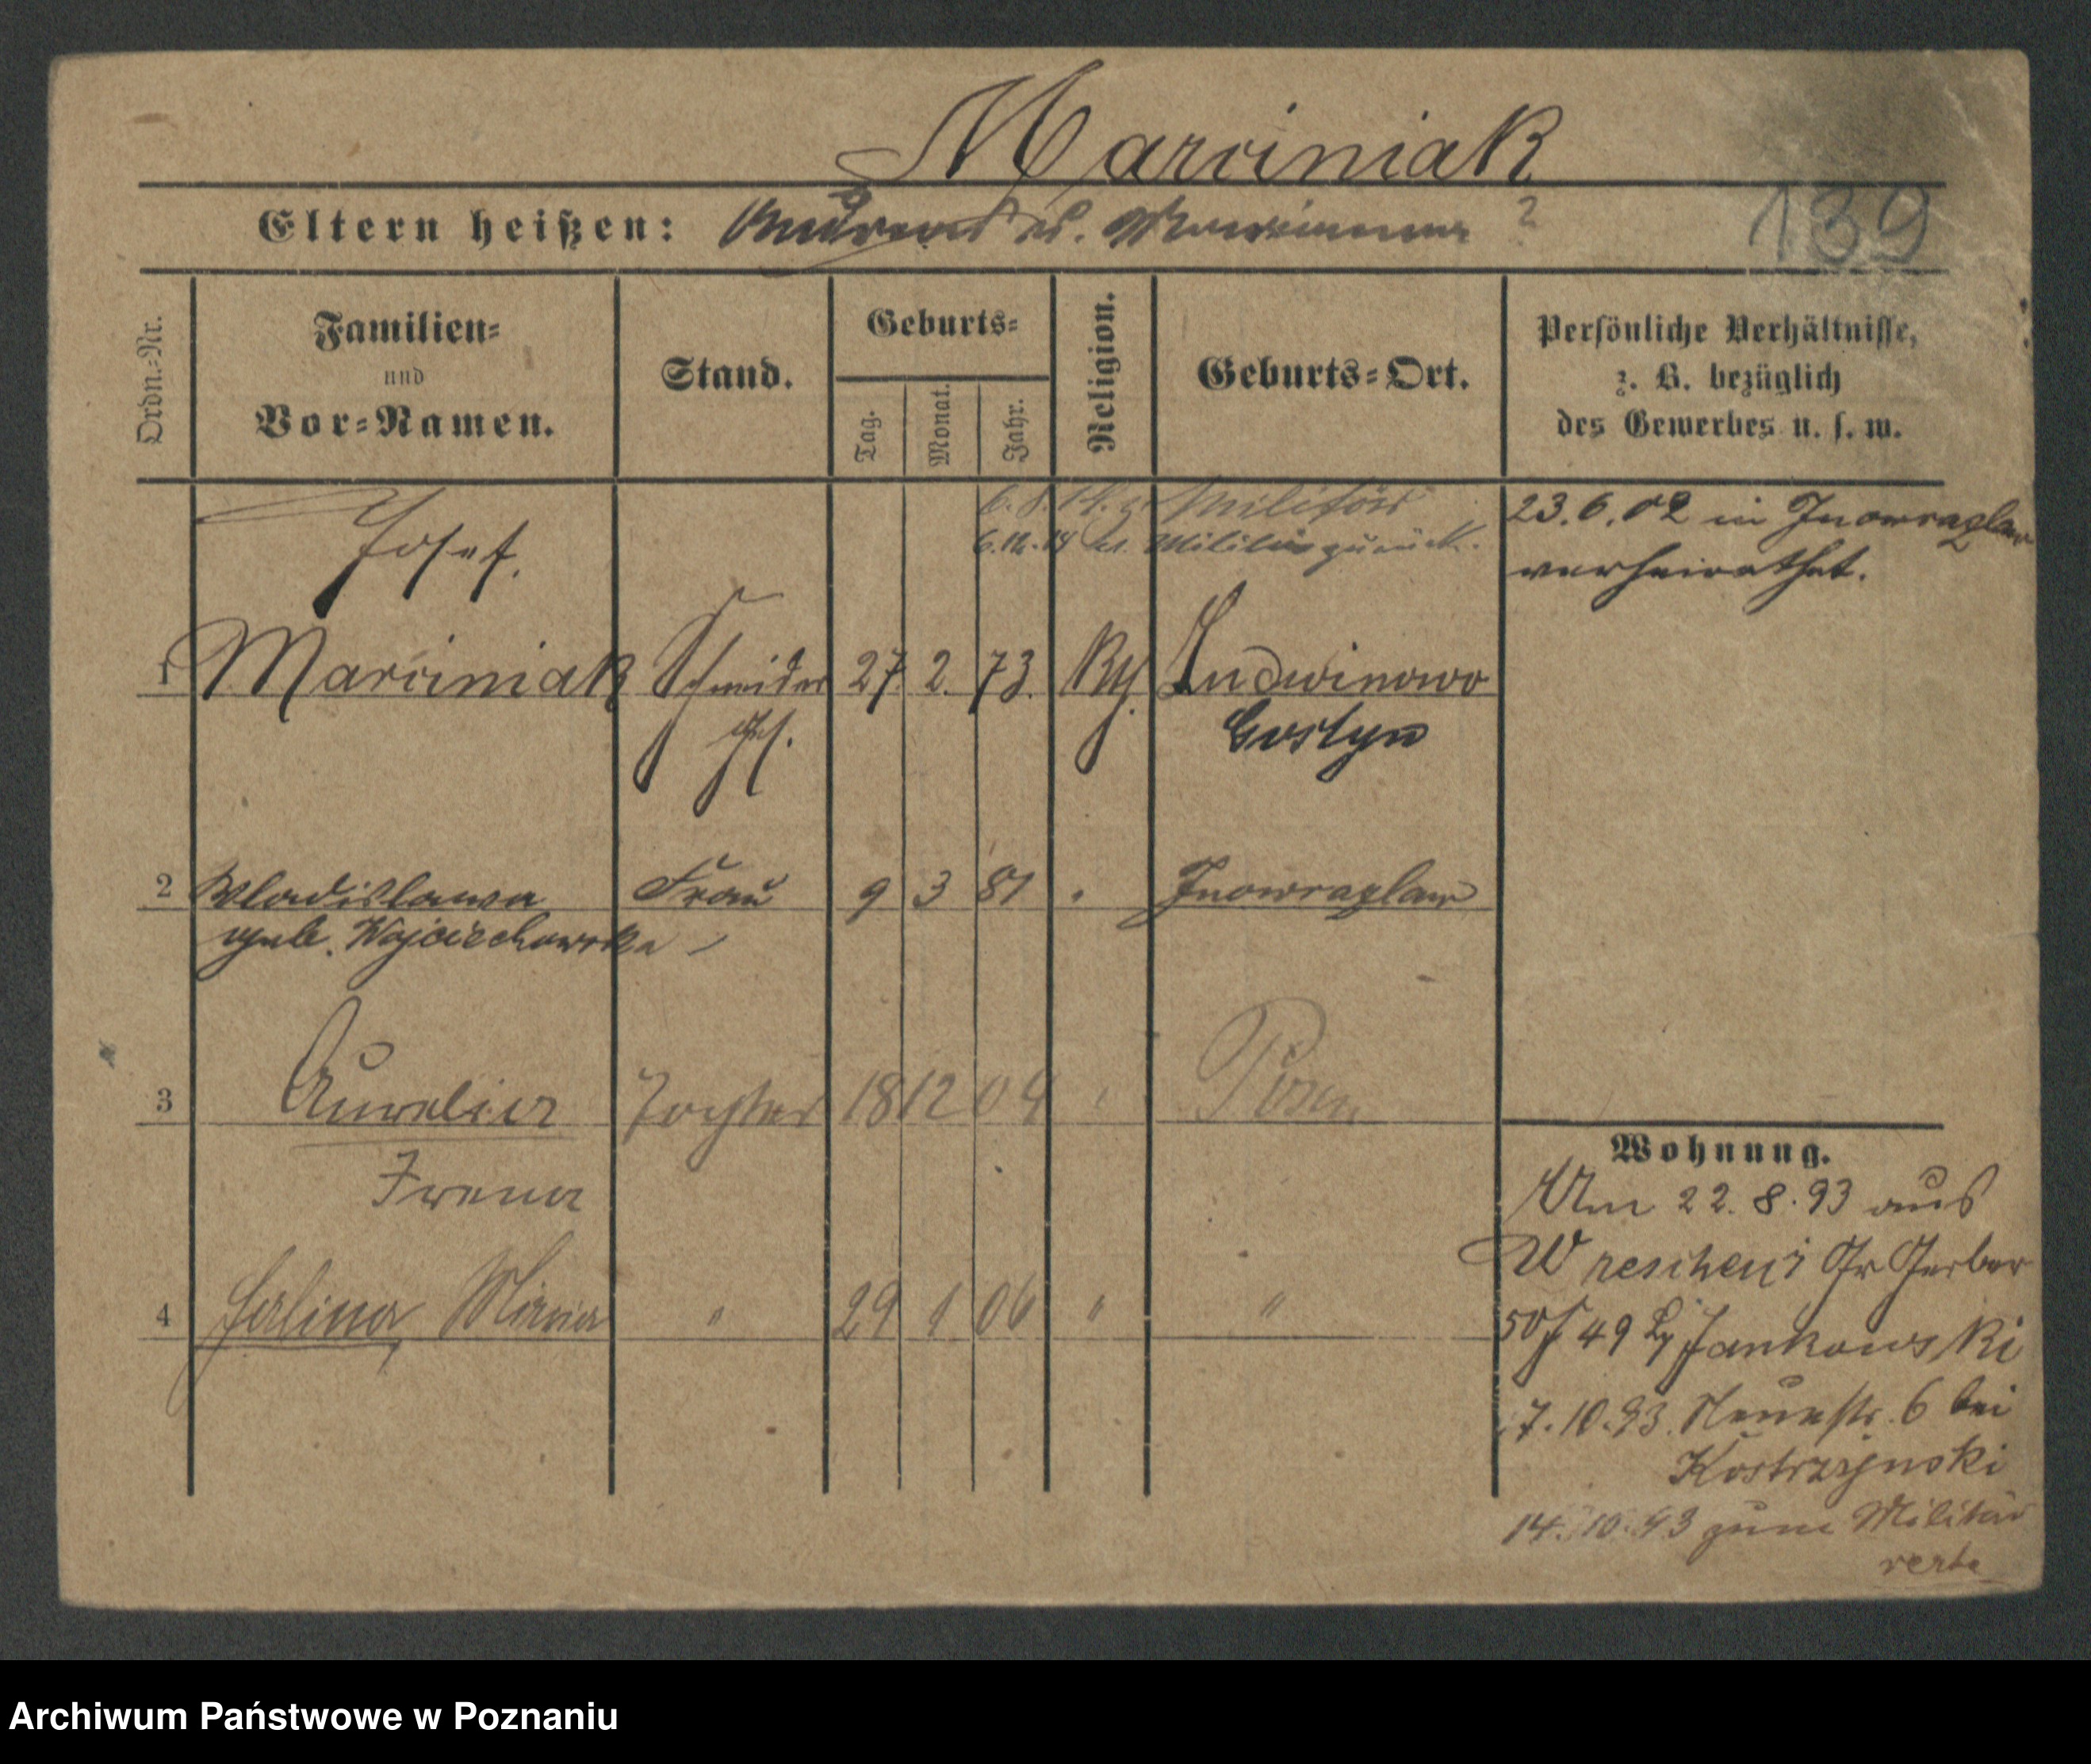 Marciniak
Eltern heißen: Andreas u. Marianna ?
139
Ordn.-Nr.
Familien-
und
Vor-Namen.
Stand.
Geburts-
Tag.
Monat.
Jahr.
Religion.
Geburts-Ort.
Persönliche Verhältnisse,
z. B. bezüglich
des Gewerbes u. s. w.
6.8.14. z. Militär
6.12.14 v. Militär zurück.
23.6.02 in Inowrazlaw
verheirathet.
Josef.
1 Marciniak Schneider 27 2. 73. Kth. Ludwinowo
ges. Gostyn
2 Wladislawa Frau 9 3 81 " Inowrazlaw
geb. Wojciechowska
3 Aurelia Tochter 18 12 04 " Posen
Irena
4 Halina Maria " 29 1 06 " "
Wohnung.
Am 22.8.93 aus
Wreschen Gr Gerber
49 Jankowski
7.10.93. Neuestr. 6 bei
Kostrzynski
14.10.93 zum Militär
verte